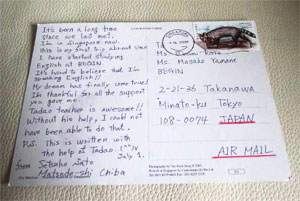 It's been a long time
since we last met.
I'm in Singapore now.
This is my first trip abroad since
I have started studying
English at BEGIN.
It's hard to believe that I'm
speaking English!!
My dream has finally come true!
I'm thankful for all the support
you gave me.
Tadao teacher is awesome!!
Without his help, I could not
have been able to do that.
P.S. This is written with
the help of Tadao. (^^)v
July 1.
from Setsuko Sato
Matsudo-shi Chiba
SINGAPORE
To:
Ms.
Ms. Masako Yamane
BEGIN
2-21-36 Takanawa
Minato-ku Tokyo
108-0074 JAPAN
AIR MAIL